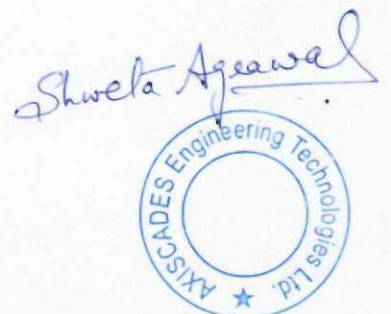 Shweta Agrawal
AXISCADES Engineering Technologies Ltd.
★